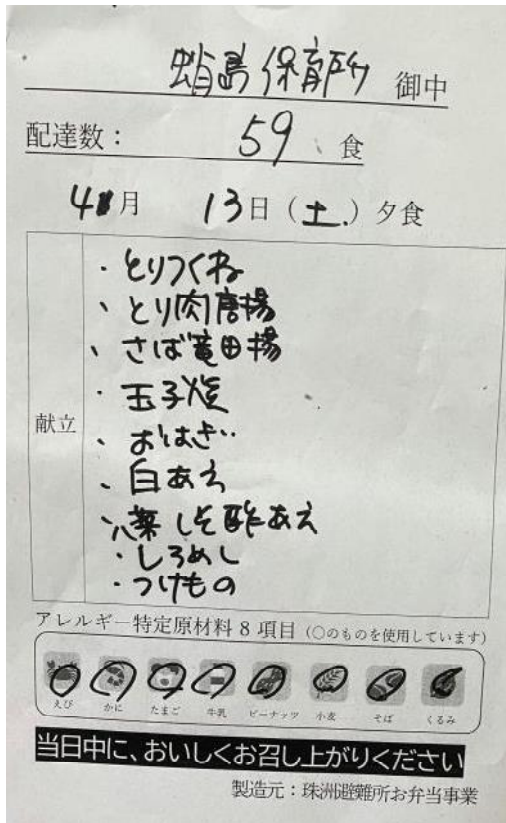 蛸島保育所 御中
配達数： 59 食
4月 13日（土.）夕食
献立
・とりつくね
、とり肉唐揚
、さば竜田揚
・玉子焼
、おはぎ
、白あえ
、八菜しそ酢あえ
・しろめし
・つけもの
アレルギー特定原材料8項目（○のものを使用しています）
えび かに たまご 牛乳 ピーナッツ 小麦 そば くるみ
当日中に、おいしくお召し上がりください
製造元：珠洲避難所お弁当事業